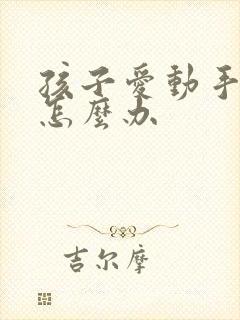 孩子愛動手
怎麼办
吉尔摩